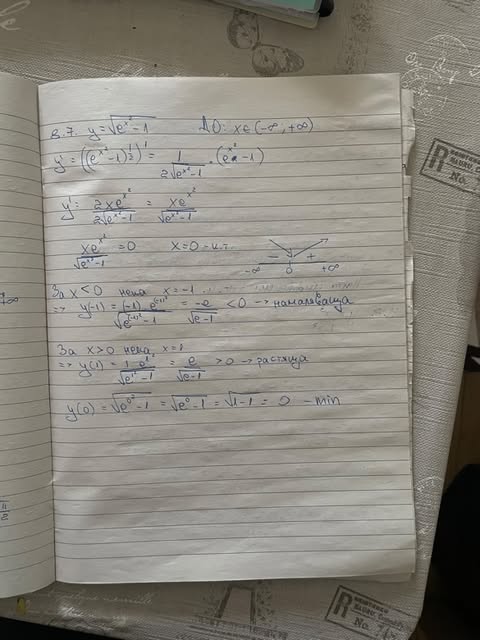 в.7. y=√(e^(x²)-1) ДО: x∈(-∞;+∞)
y'=((e^(x²)-1)^(1/2))'= 1/(2√(e^(x²)-1)) · (e^(x²)-1)
y'= 2xe^(x²)/(2√(e^(x²)-1)) = xe^(x²)/√(e^(x²)-1)
xe^(x²)/√(e^(x²)-1) =0 x=0-к.т.
- +
-∞ 0 +∞
За x<0 нека x=-1
=> y(-1)= (-1)·e^((-1)²)/√(e^((-1)²)-1) = -e/√(e-1) <0 → намаляваща
За x>0 нека, x=1
=> y(1)= 1·e^1/√(e^1²-1) = e/√(e-1) >0 → растяща
y(0)=√(e^(0²)-1) =√(e^0-1) =√(1-1) = 0 - min
R
No.
R